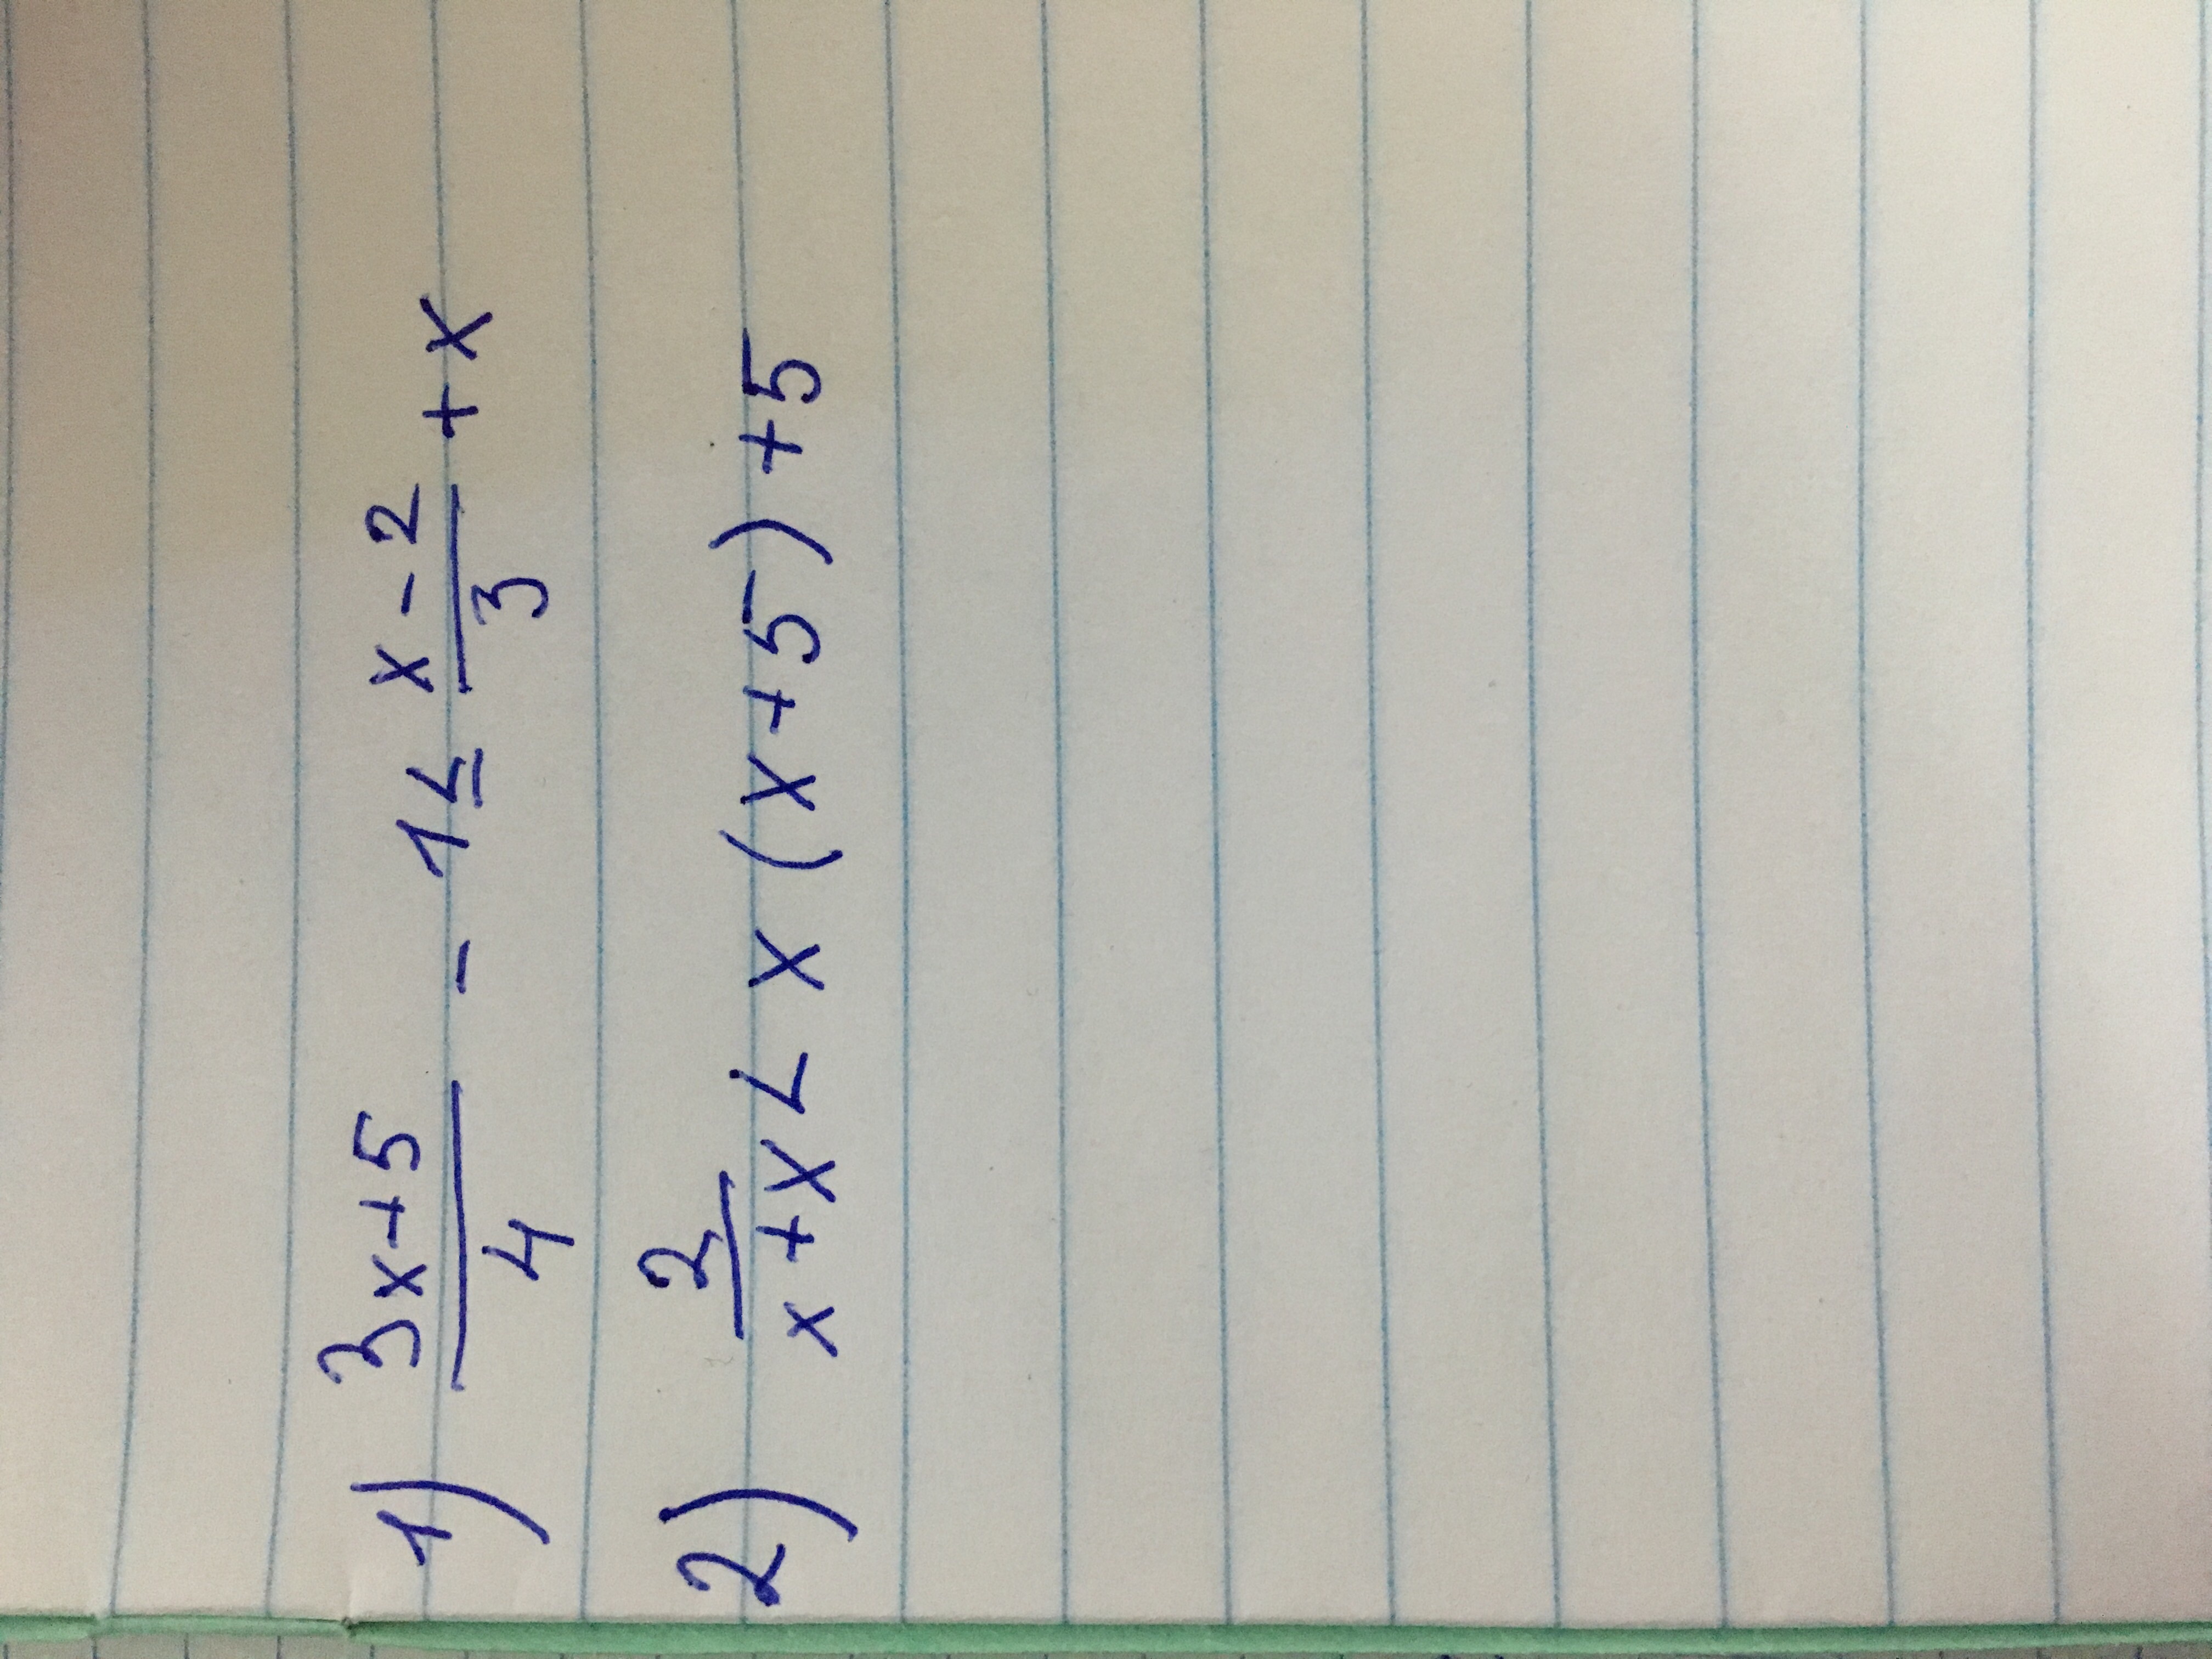 1) (3x+5)/4 - 1 ≤ (x-2)/3 + x
2) 2/x + x < x (x+5) + 5